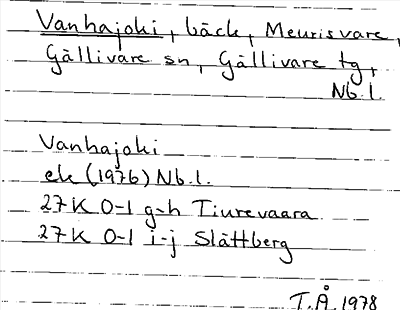 Vanhajoki, bäck, Meurisvare,
Gällivare sn, Gällivare tg,
Nb.l.
Vanhajoki
ek (1976) Nb.l.
27K 0-1 g-h Tiurevaara
27K 0-1 i-j Slättberg
T.Å 1978